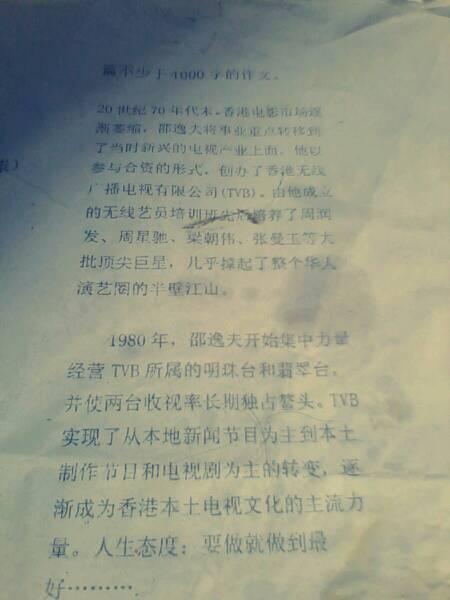 篇不少于1000字的作文。
20世纪70年代末,香港电影市场逐
渐萎缩,邵逸夫将事业重点转移到
了当时新兴的电视产业上面,他以
参与合资的形式,创办了香港无线
广播电视有限公司(TVB)。由他成立
的无线艺员培训班先后培养了周润
发、周星驰、梁朝伟、张曼玉等大
批顶尖巨星,几乎撑起了整个华人
演艺圈的半壁江山。
1980年,邵逸夫开始集中力量
经营TVB所属的明珠台和翡翠台,
并使两台收视率长期独占鳌头。TVB
实现了从本地新闻节目为主到本土
制作节目和电视剧为主的转变,逐
渐成为香港本土电视文化的主流力
量。人生态度:要做就做到最
好………